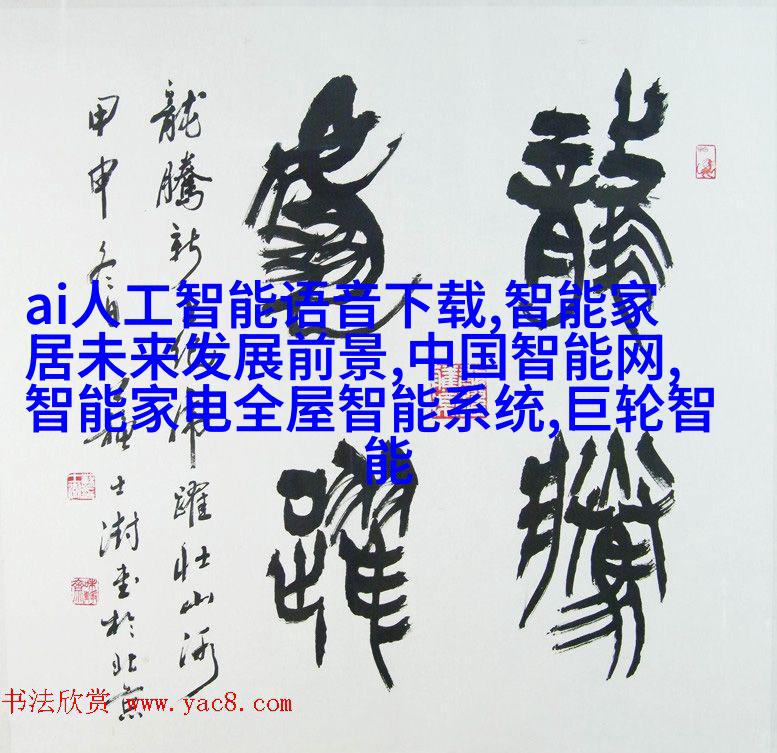 龍騰
虎躍
龍騰新世紀虎躍壯山河
甲申冬月蘇士澍書於北京
ai人工智能语音下载,智能家
居未来发展前景,中国智能网,
智能家电全屋智能系统,巨轮智
能
书法欣赏 www.yac8.com